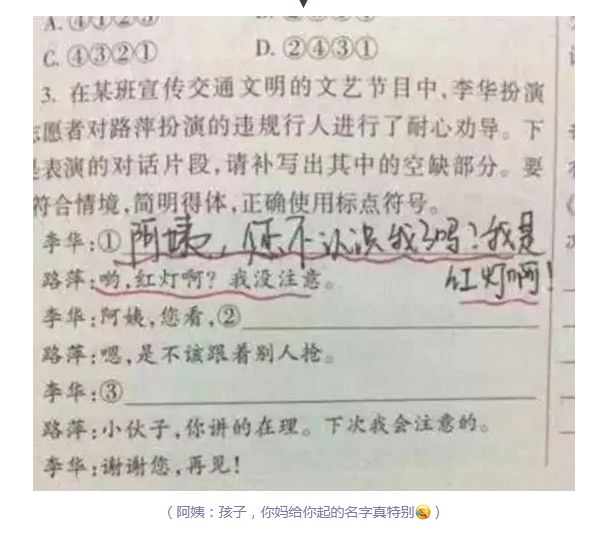 A.④①②③
C.④③②① D.②④③①
3. 在某班宣传交通文明的文艺节目中,李华扮演
志愿者对路萍扮演的违规行人进行了耐心劝导。下
是表演的对话片段,请补写出其中的空缺部分。要
符合情境,简明得体,正确使用标点符号。
李华:①阿姨,您不认识我了吗?我是
红灯啊!
路萍:哟,红灯啊?我没注意。
李华:阿姨,您看,②
路萍:嗯,是不该跟着别人抢。
李华:③
路萍:小伙子,你讲的在理。下次我会注意的。
李华:谢谢您,再见!
(阿姨:孩子,你妈给你起的名字真特别🤣)